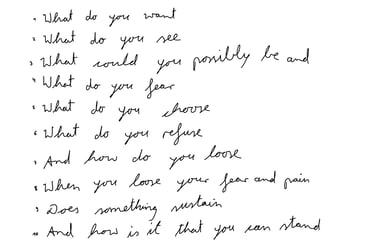 What do you want
What do you see
What could you possibly be and
What do you fear
What do you choose
What do you refuse
And how do you loose
When you loose your fear and pain
Does something sustain
And how is it that you can stand